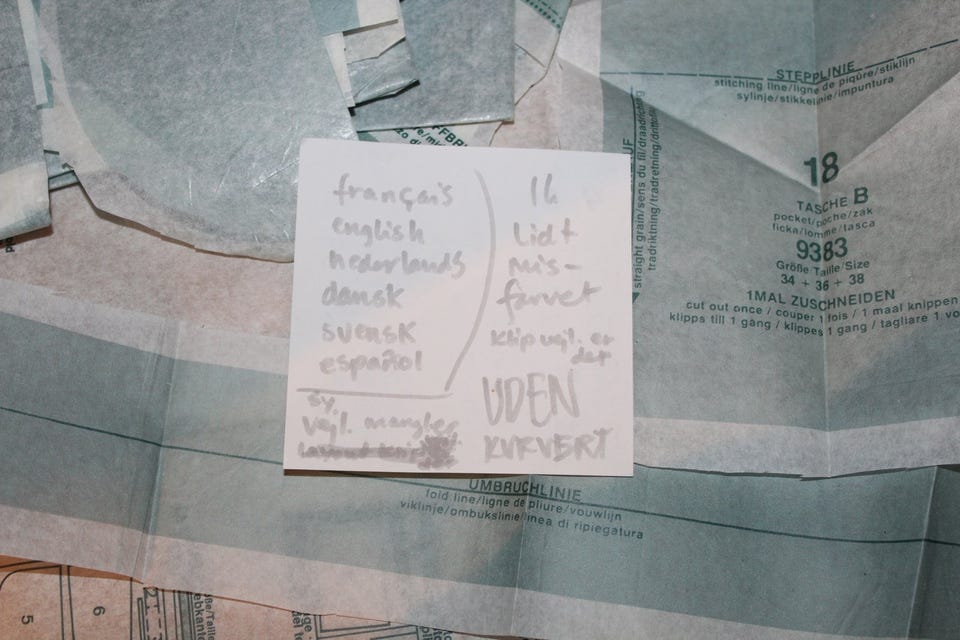 STEPPLINIE
stitching line/ligne de piqûre/stiklijn
sylinje/stikkelinie/impuntura
straight grain/sens du fil/draadrichting
tradriktning/tradretning/drittofilo
18
TASCHE B
pocket/poche/zak
ficka/lomme/tasca
9383
Größe/Taille/Size
34 + 36 + 38
1MAL ZUSCHNEIDEN
cut out once / couper 1 fois / 1 maal knippen
klipps till 1 gång / klippes 1 gang / tagliare 1 vo
français
english
nederlands
dansk
svensk
español
sy.
vejl. mangler
lidt
mis-
farvet
klip vejl. er
det
UDEN
KUVERT
UMBRUCHLINIE
fold line/ligne de pliure/vouwlijn
viklinje/ombukslinie/linea di ripiegatura
5
6